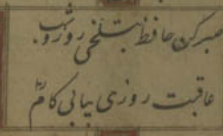 صبر کن حافظ بسختی روز و شب
عاقبت روزی بیابی کام را